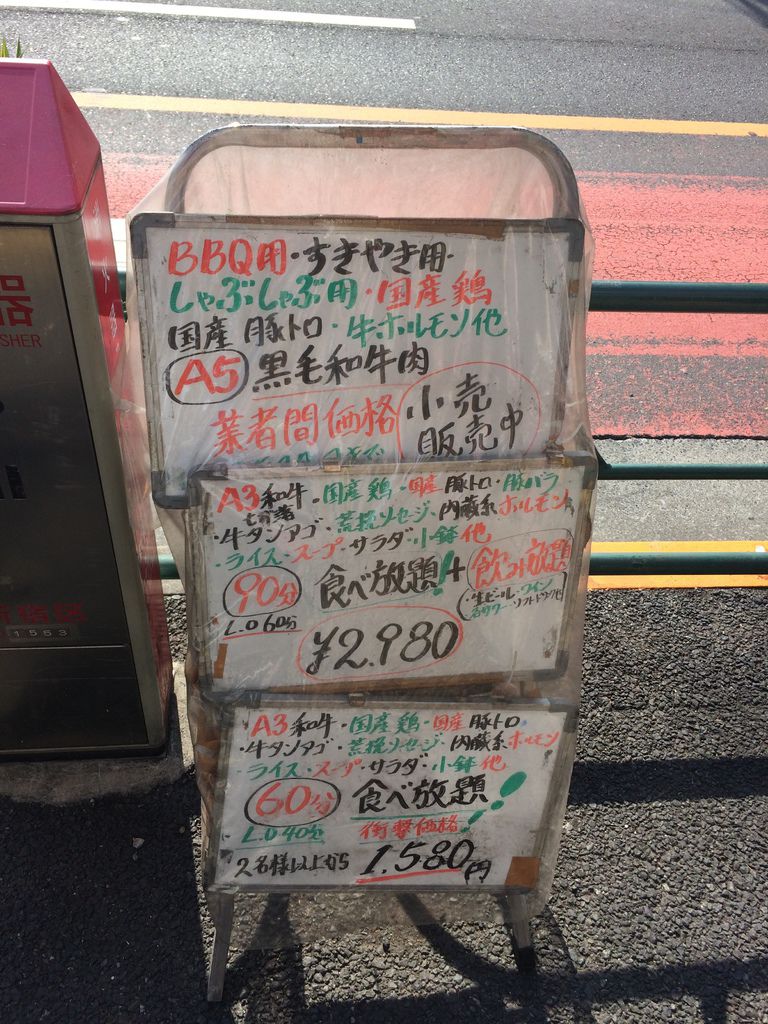 BBQ用・すきやき用・
しゃぶしゃぶ用・国産鶏
国産 豚トロ・牛ホルモン他
A5 黒毛和牛肉
業者間価格 小売
販売中
A3和牛・国産鶏・国産豚トロ・豚バラ
・牛タンアゴ・荒挽ソセージ・内蔵系ホルモン
ライス・スープ・サラダ・小鉢他
90分 食べ放題!+飲み放題
L.O 60分
・生ビール・ワイン
¥2.980
A3和牛・国産鶏・国産豚トロ
・牛タンアゴ・荒挽ソセージ・内蔵系ホルモン
ライス・スープ・サラダ・小鉢他
60分 食べ放題!
L.O 40分 衝撃価格!
2名様以上から 1.580円
器
SHER
新宿区
1553